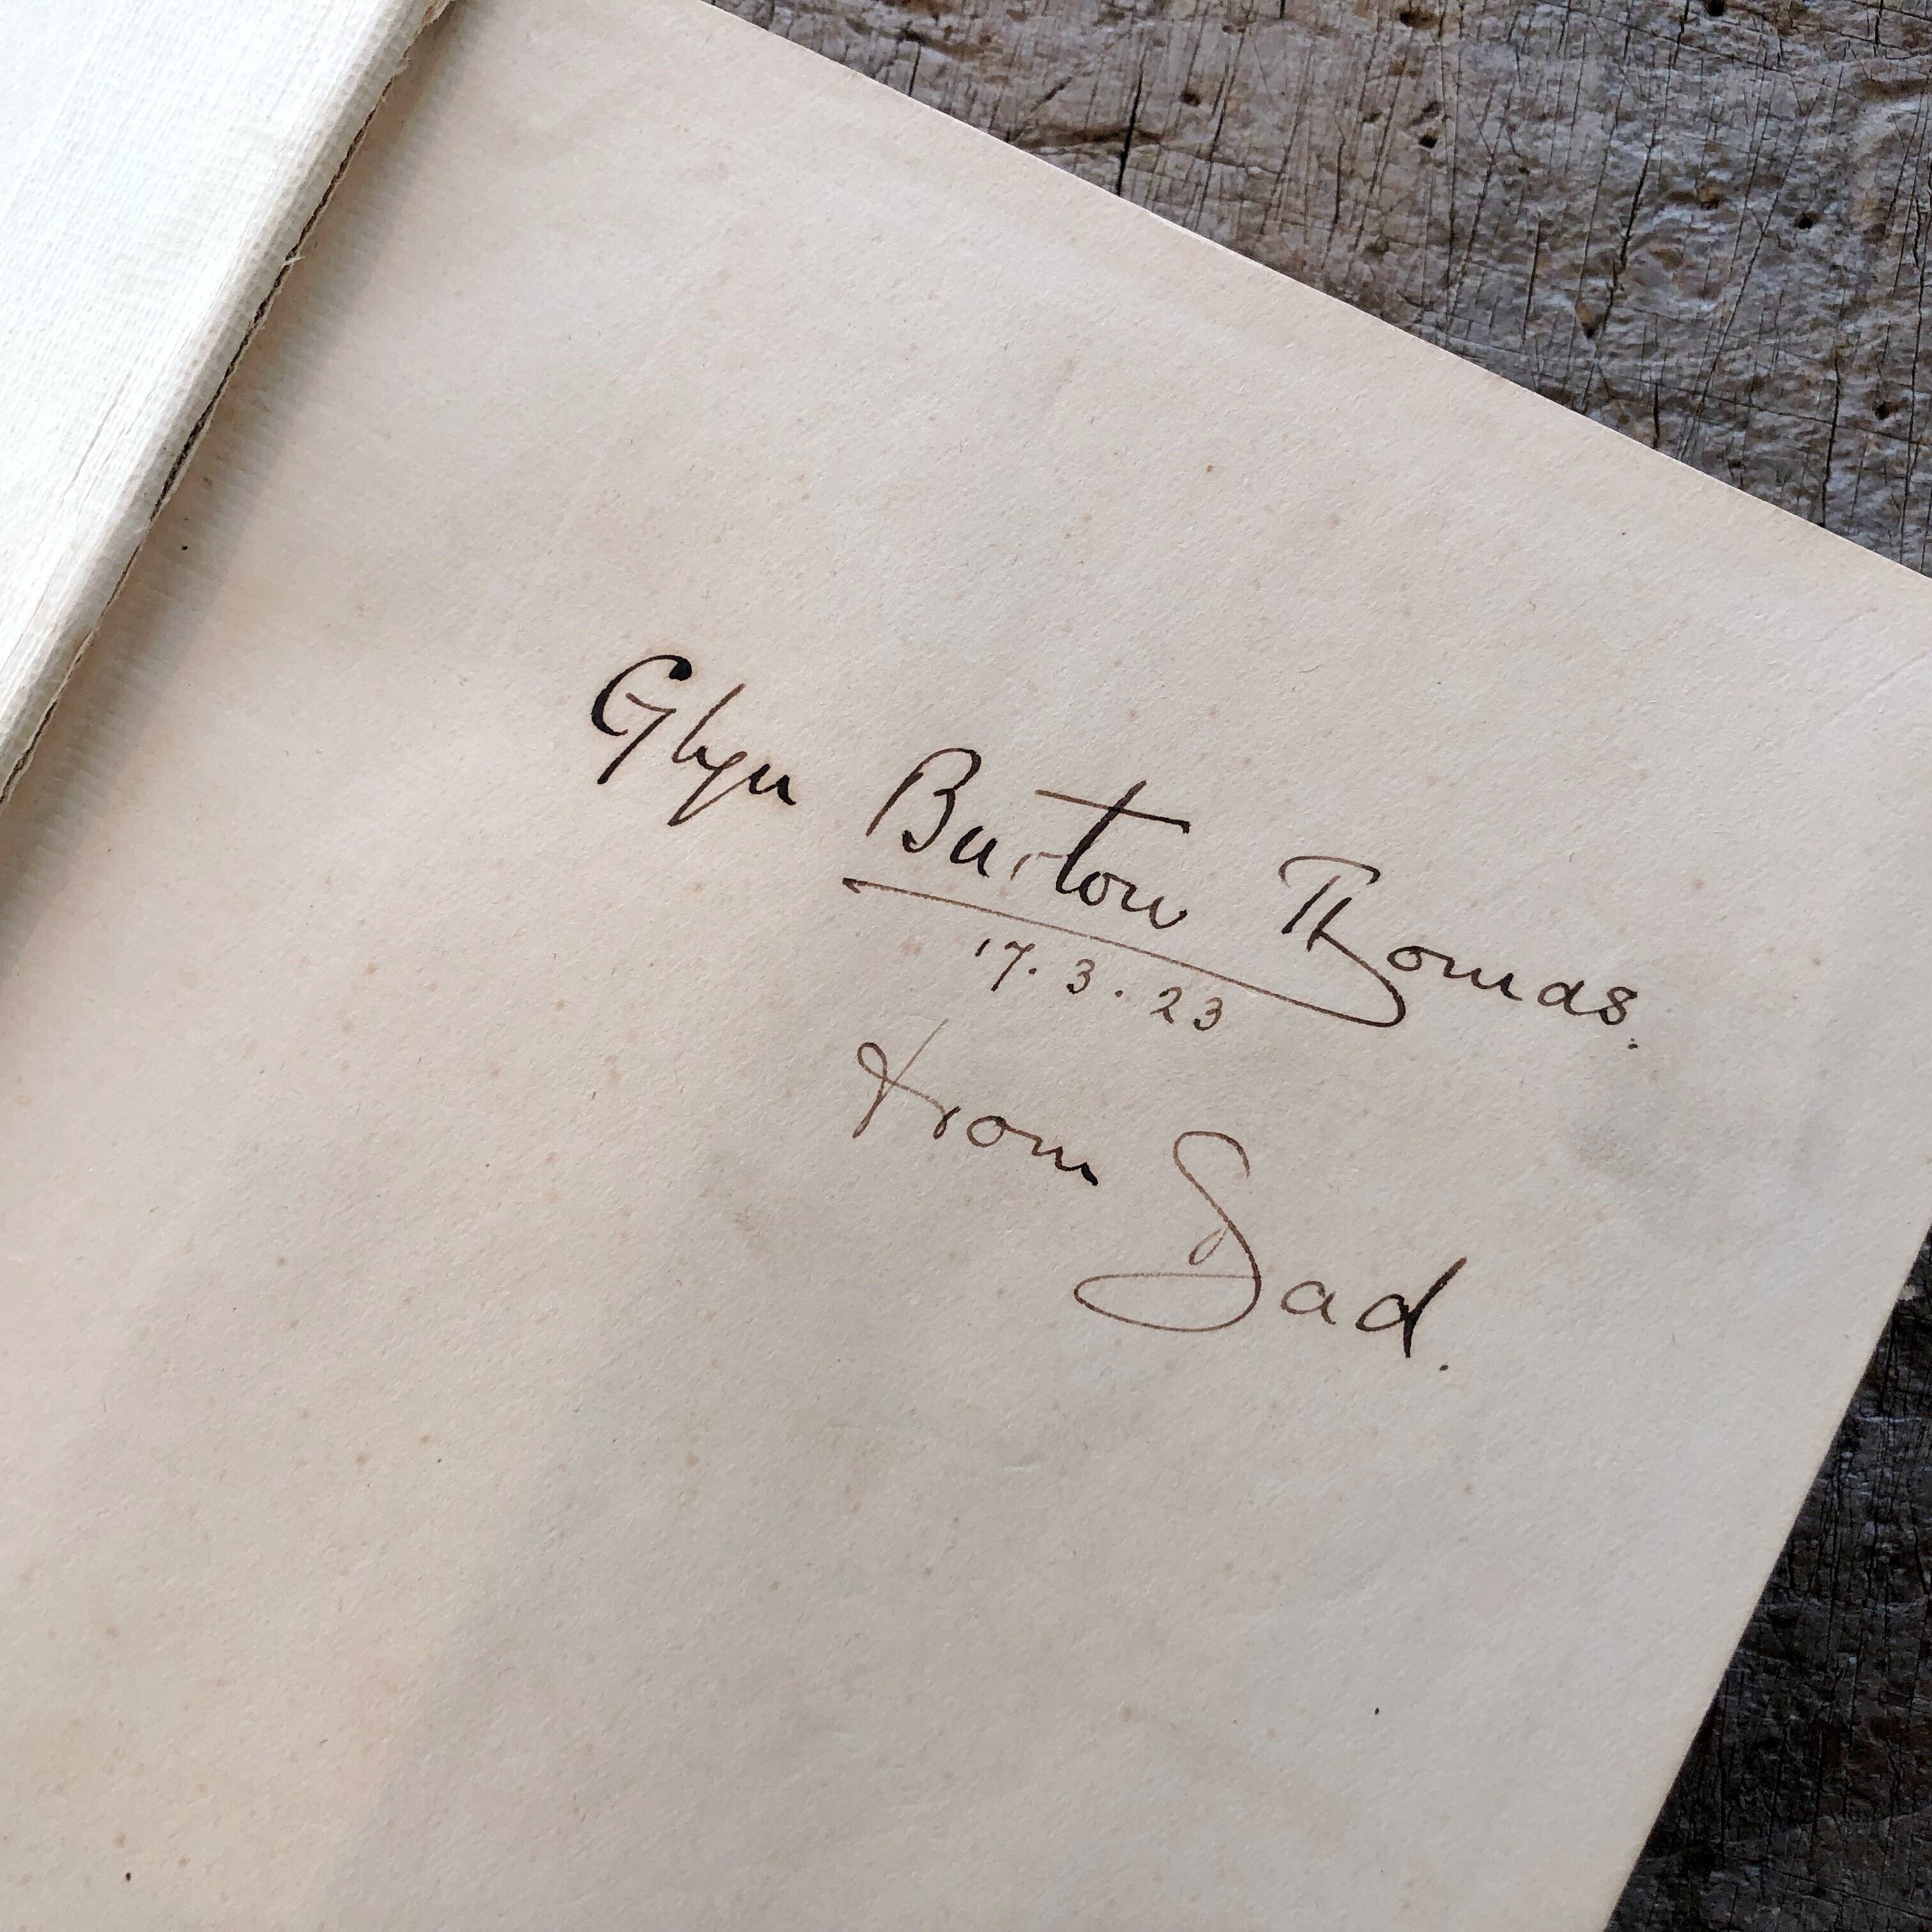 Glyn Burton Thomas.
17.3.23
From Dad.